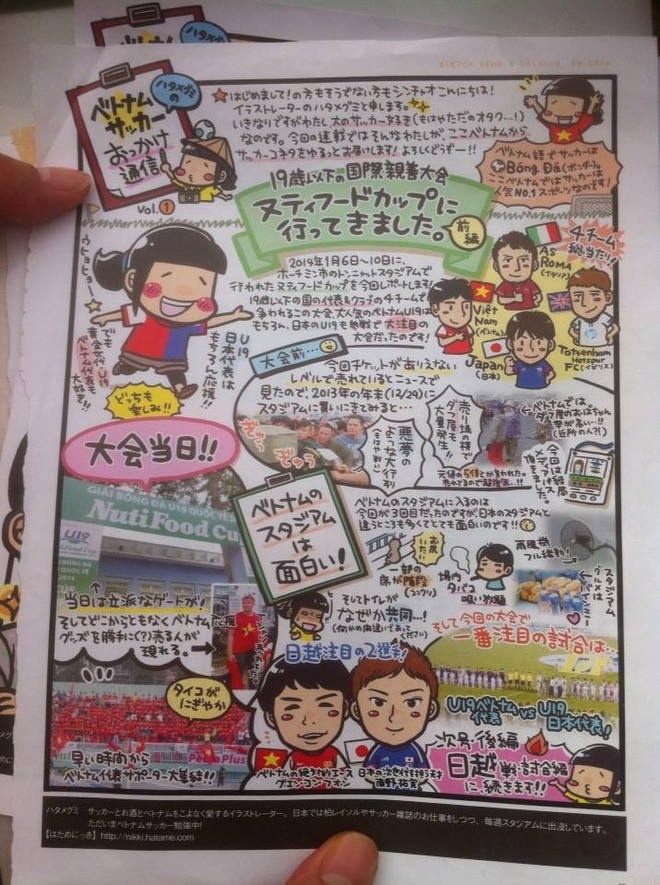 ハタメグミの
ベトナム
サッカー
おっかけ
通信!
Vol.1
はじめまして!の方もそうでない方もシンチャオこんにちは!
イラストレーターのハタメグミと申します。
いきなりですがわたし、大のサッカー好き(もはやただのオタク…!)
なのです。今回の連載ではそんなわたしが、ここベトナムから
サッカーネタをゆるっとお届けします!よろしくどうぞー!!
ベトナム語でサッカーは
Bóng Đá(ボンダー)。
ここベトナムではサッカーは
人気NO.1スポーツなのです!
19歳以下の国際親善大会
ヌティフードカップに
行ってきました。
前編
2014年1月6日~10日に、
ホーチミン市のトンニャットスタジアムで
行われたヌティフードカップを今回レポートします!
19歳以下の国の代表&クラブの4チームで
争われるこの大会、大人気のベトナムU19は
もちろん、日本のU19も参戦で大注目の
大会だったのです!
4チーム
総当たり!
AS
ROMA
(イタリア)
Việt
Nam
(ベトナム)
Japan
(日本)
Tottenham
Hotspur
FC(イギリス)
ウヒョヒョー
U19
日本代表は
もちろん応援!!
でも
黄金世代U19
ベトナム代表も
大好き!!
どっちも
楽しみ!!
大会前…
今回チケットがありえない
レベルで売れているとニュースで
見たので、2013年の年末(12/29)に
スタジアムに買いにきてみると…
ぎゅっ
ぎゅう
悪夢の
ような大行列
売り場の横で
ダフ屋も
大量発生!!
ベトナムでは
ダフ屋のおばちゃん
率が高い…!!
(近所の人?!)
大会当日!!
GIẢI BÓNG ĐÁ U19 QUỐC TẾ
NutiFood Cup
ベトナムの
スタジアム
は
面白い!
ベトナムのスタジアムに入るのは
今回が3回目だったのですが、日本のスタジアムと
違うところも多くてとても面白いのです!!
お尻
いたい
一部の
席が階段
(コンクリ)
場内
タバコ
吸い放題
扇風機
フル稼動!
スタジアム
グルメは
バインミー
そしてトイレが
なぜか共同…!
当日は立派なゲートが!
そしてどこからともなくベトナム
グッズを勝手に(?)売る人が
現れる。→
タイコが
にぎやか
早い時間から
ベトナム代表サポーター大集結!!
日越注目の2選手!
ベトナムの絶対的エース
グエンコンフオン
日本の次世代を担う逸材
南野拓実
そして今回の大会で
一番注目の試合は…
U19ベトナム
代表
vs U19
日本代表!
次号・後編
日越戦・試合編
に続きます!!
ハタメグミ サッカーとお酒とベトナムをこよなく愛するイラストレーター。日本では柏レイソルやサッカー雑誌のお仕事をしつつ、毎週スタジアムに出没しています。
ただいまベトナムサッカー勉強中!
【はためにっき】http://nikki.hatame.com